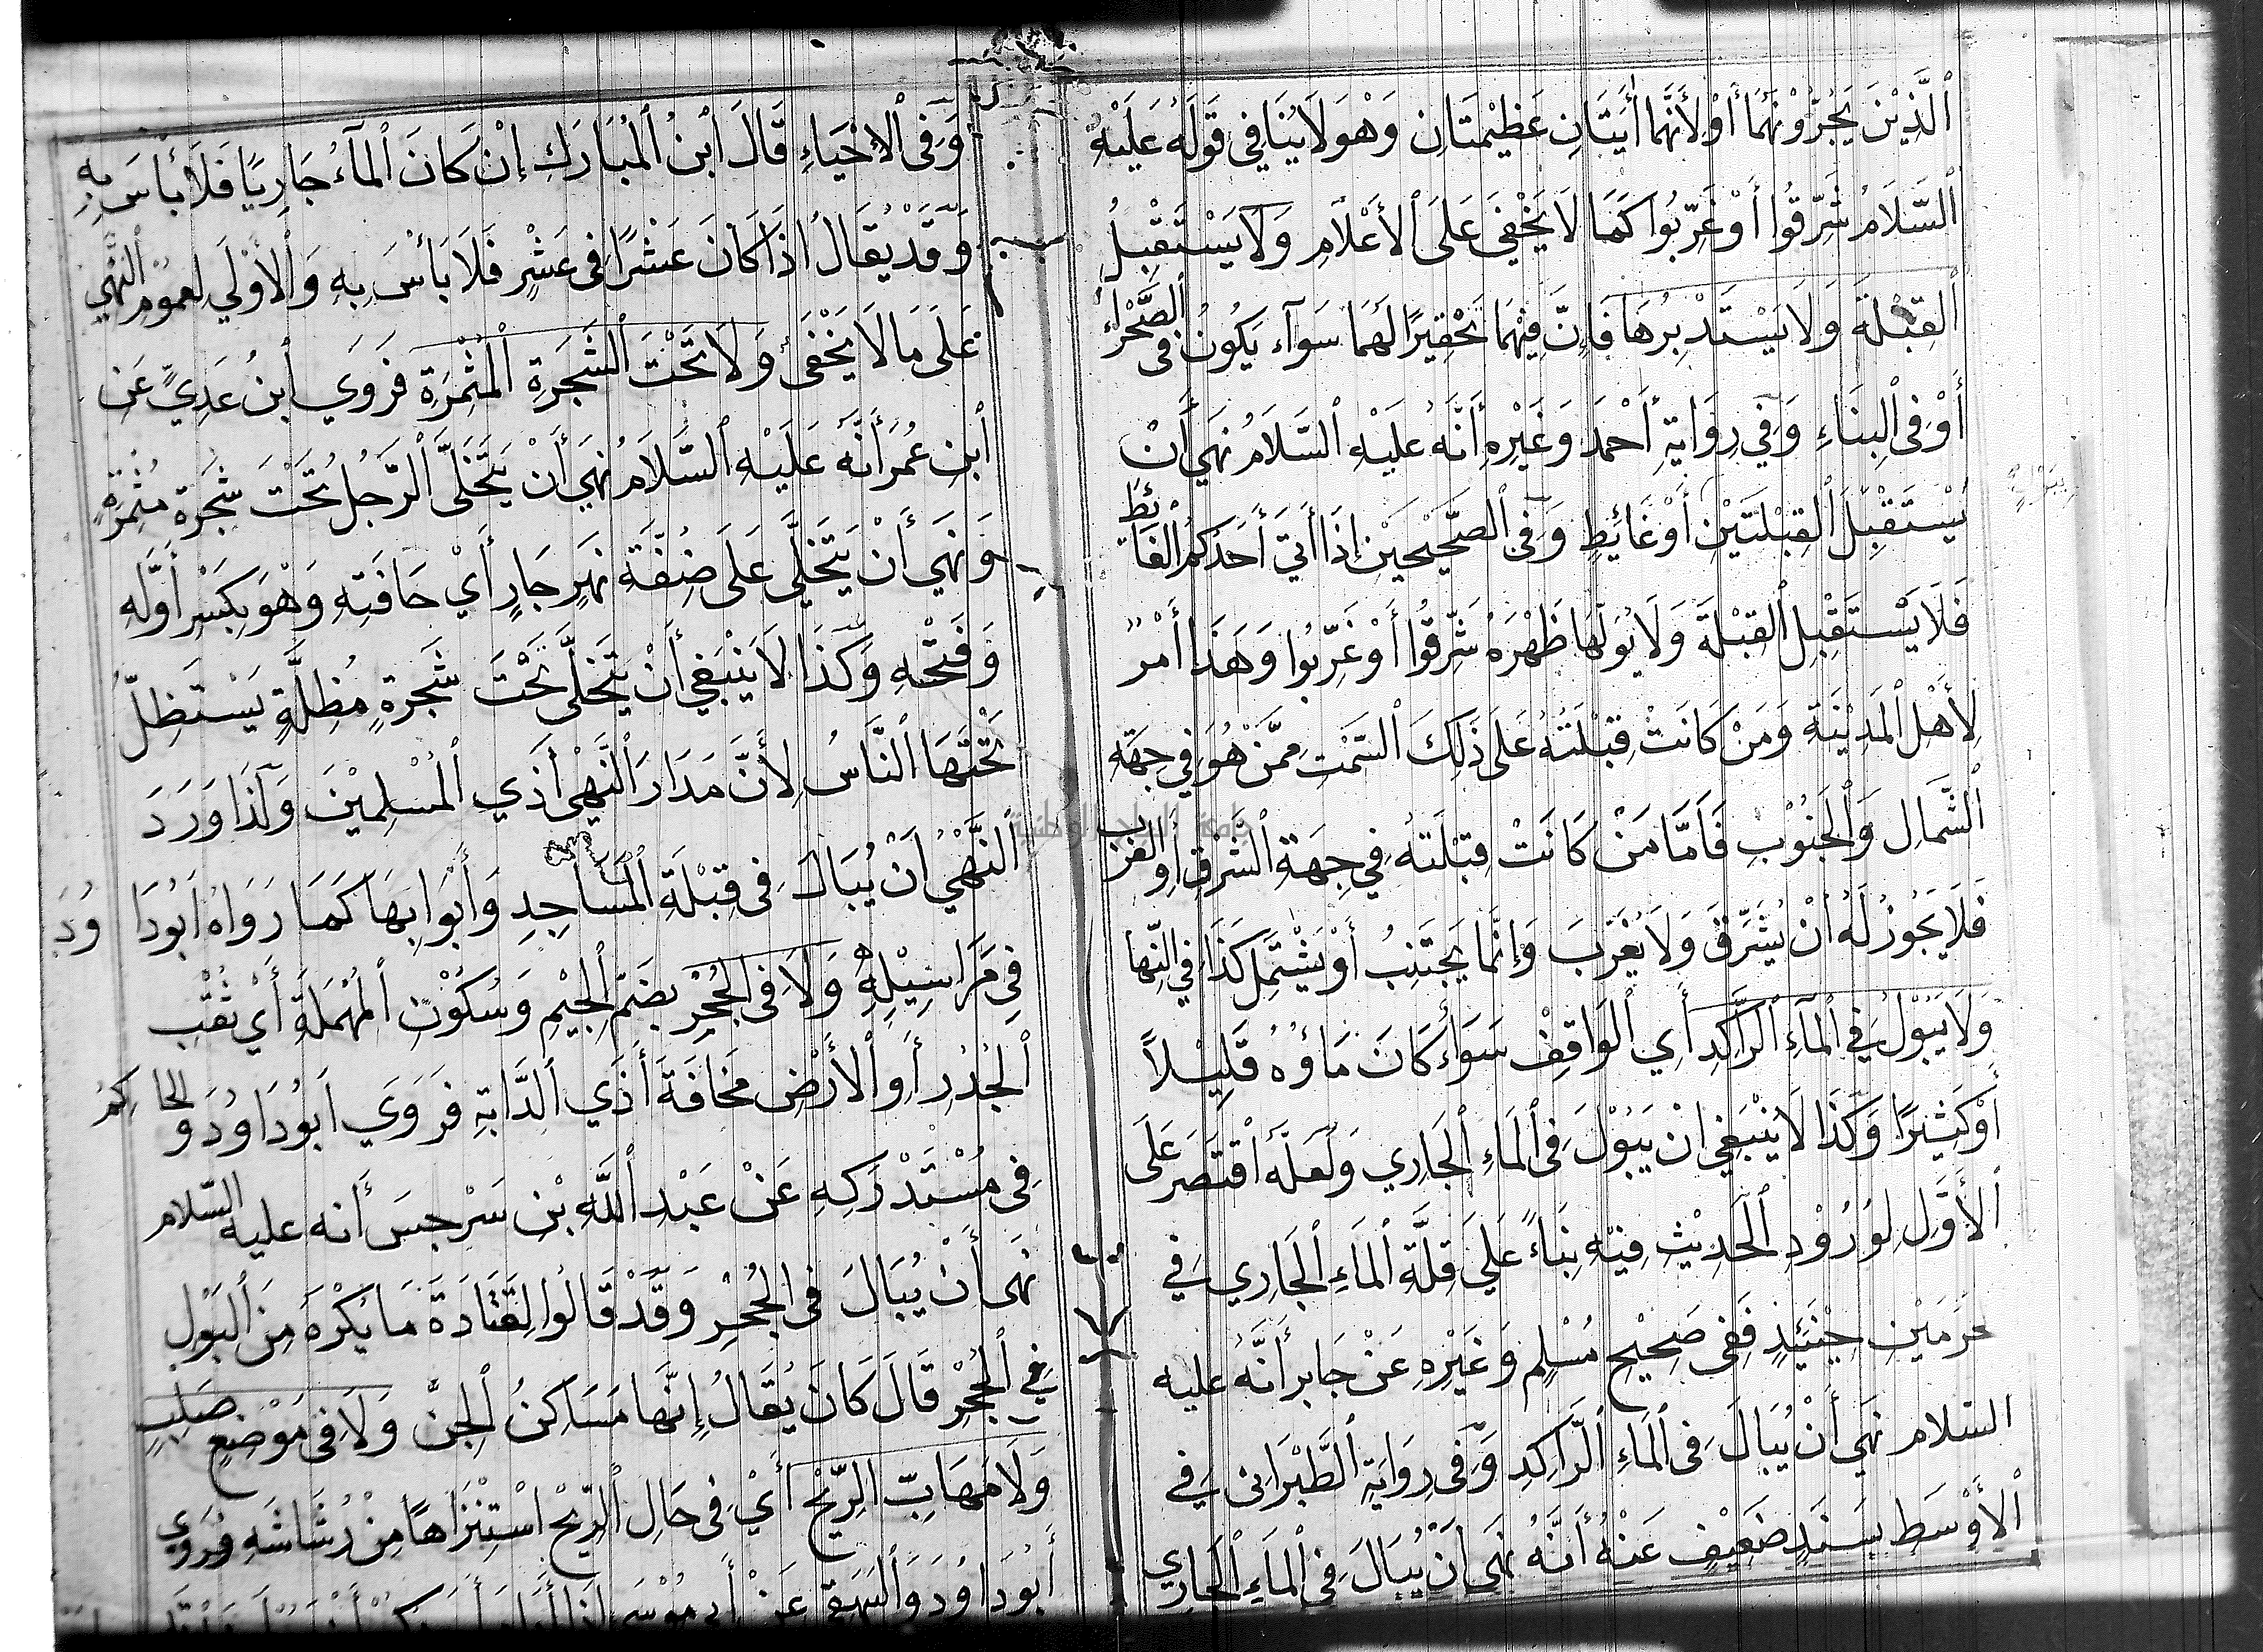 ٱلَّذِيْنَ يَجُرُّوْنَهُمَا أَوْ لِأَنَّهُمَا أٰيَتَانِ عَظِيْمَتَانِ وَهُوَ لَا يُنَافِي قَوْلَهُ عَلَيْهِ
ٱلسَّلَامُ شَرِّقُوا أَوْ غَرِّبُوا كَمَا لَا يَخْفَى عَلَى ٱلْأَعْلَامِ وَلَا يَسْتَقْبِلُ
ٱلْقِبْلَةَ وَلَا يَسْتَدْبِرُهَا فَإِنَّ فِيْهِمَا تَحْقِيْرًا لَهُمَا سَوَآء يَكُونُ فِى الصَّحْرَاءِ
أَوْ فِى ٱلْبِنَاءِ وَفِي رِوَايَةِ أَحْمَدَ وَغَيْرِهِ أَنَّهُ عَلَيْهِ ٱلسَّلَامُ نَهَى أَنْ
يَسْتَقْبِلَ ٱلْقِبْلَتَيْنِ أَوْ غَائِطٍ وَفِى ٱلصَّحِيْحَيْنِ إِذَا أَتَى أَحَدُكُمُ ٱلْغَائِطَ
فَلَا يَسْتَقْبِلِ ٱلْقِبْلَةَ وَلَا يُوَلِّهَا ظَهْرَهُ شَرِّقُوا أَوْ غَرِّبُوا وَهَذَا أَمْرٌ
لِأَهْلِ ٱلْمَدِيْنَةِ وَمَنْ كَانَتْ قِبْلَتُهُ عَلَى ذَلِكَ ٱلسَّمْتِ مِمَّنْ هُوَ فِي جِهَةِ
ٱلشَّمَالِ وَٱلْجَنُوْبِ فَأَمَّا مَنْ كَانَتْ قِبْلَتُهُ فِي جِهَةِ ٱلشَّرْقِ أَوِ الْغَرْبِ
فَلَا يَجُوزُ لَهُ أَنْ يُشَرِّقَ وَلَا يُغَرِّبَ وَإِنَّمَا يَجْتَنِبُ أَوْ يَشْتَمِلُ كَذَا فِي النِّهَا
وَلَا يَبُوْلُ فِي ٱلْمَآءِ ٱلرَّاكِدِ أَيِ ٱلْوَاقِفِ سَوَآءٌ كَانَ مَاؤُهُ قَلِيْلًا
أَوْ كَثِيْرًا وَكَذَا لَا يَنْبَغِي أَنْ يَبُوْلَ فِى ٱلْمَاءِ ٱلْجَارِي وَلَعَلَّهُ ٱقْتَصَرَ عَلَى
ٱلْأَوَّلِ لِوُرُوْدِ ٱلْحَدِيْثِ فِيْهِ بِنَاءً عَلَى قِلَّةِ ٱلْمَاءِ ٱلْجَارِي فِي
حَرَمَيْنِ حِيْنَئِذٍ فَفِى صَحِيْحِ مُسْلِمٍ وَغَيْرِهِ عَنْ جَابِر أَنَّهُ عَلَيْهِ
السَّلَام نَهَى أَنْ يُبَالَ فِى ٱلْمَاءِ ٱلرَّاكِدِ وَفِى رِوَايَةِ ٱلطَّبْرَانِى فِي
ٱلْأَوْسَطِ بِسَنَدٍ ضَعِيْفٍ عَنْهُ أَنَّهُ نَهَى أَنْ يُبَالَ فِى ٱلْمَاءِ ٱلْجَارِي
وَفِى ٱلْإِحْيَاءِ قَالَ ٱبْنُ ٱلْمُبَارَكِ إِنْ كَانَ ٱلْمَآءُ جَارِيًا فَلَا بَأْسَ بِهِ
وَقَدْ يُقَالُ إِذَا كَانَ عَشْرًا فِى عَشْرٍ فَلَا بَأْسَ بِهِ وَٱلْأَوْلَى لِعُمُوْمِ ٱلنَّهْيِ
عَلَى مَا لَا يَخْفَى وَلَا تَحْتَ ٱلشَّجَرَةِ الْمُثْمِرَةِ فَرَوَى ٱبْنُ عَدِيٍّ عَنِ
ٱبْنِ عُمَرَ أَنَّهُ عَلَيْهِ ٱلسَّلَامُ نَهَى أَنْ يَتَخَلَّى ٱلرَّجُلُ تَحْتَ شَجَرَةٍ مُثْمِرَةٍ
وَنَهَى أَنْ يَتَخَلَّى عَلَى ضِفَّةِ نَهَرٍ جَارٍ أَيْ حَافَتِهِ وَهُوَ بِكَسْرِ أَوَّلِهِ
وَفَتْحِهِ وَكَذَا لَا يَنْبَغِي أَنْ يَتَخَلَّى تَحْتَ شَجَرَةٍ مُظِلَّةٍ يَسْتَظِلُّ
تَحْتَهَا ٱلنَّاسُ لِأَنَّ مَدَارَ ٱلنَّهْيِ أَذَي ٱلْمُسْلِمِيْنَ وَلِذَا وَرَدَ
ٱلنَّهْيُ أَنْ يُبَالَ فِى قِبْلَةِ ٱلْمَسَاجِدِ وَأَبْوَابِهَا كَمَا رَوَاهُ أَبُوْدَاوُدَ
فِي مَرَاسِيْلِهِ وَلَا فِى الْجُحْرِ بِضَمِّ ٱلْجِيْمِ وَسُكُوْنِ ٱلْمُهْمَلَةِ أَيْ ثُقْبِ
ٱلْجُدُرِ أَوِ ٱلْأَرْضِ مَخَافَةَ أَذَي ٱلدَّابَةِ فَرَوَى أَبُوْدَاوُدَ وَالحَاكِمُ
فِى مُسْتَدْرَكِهِ عَنْ عَبْدِ ٱللَّهِ بْنِ سَرْجِسَ أَنَّهُ عَلَيْهِ السَّلَام
نَهَى أَنْ يُبَالَ فِى الْجُحْرِ وَقَدْ قَالُوا لِقَتَادَةَ مَا يُكْرَهُ مِنَ ٱلْبَوْلِ
فِي ٱلْجُحْرِ قَالَ كَانَ يُقَالُ إِنَّهَا مَسَاكِنُ ٱلْجِنِّ وَلَا فِى مَوْضِعٍ صَلِبٍ
وَلَا مَهَابِّ الرِّيْحِ أَيْ فِى حَالِ ٱلرِّيْحِ ٱسْتِنْزَاهًا مِنْ رُشَاشَهِ فَرَوَى
أَبُوْدَاوُدَ وَٱلْبَيْهَقِي عَنْ أَبِي مُوْسَى
جامعة النجاح الوطنية